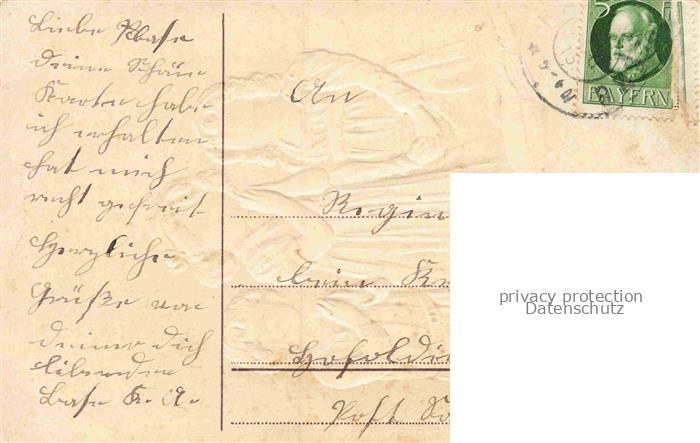 Liebe Base
Deine Schöne
Karte habe
ich erhalten
hat mich
recht gefreit
Herzliche
Grüße von
deiner dich
liebenden
Base K. A.
An
Regin
beim
Hofoldin
Post
5
BAYERN
privacy protection
Datenschutz